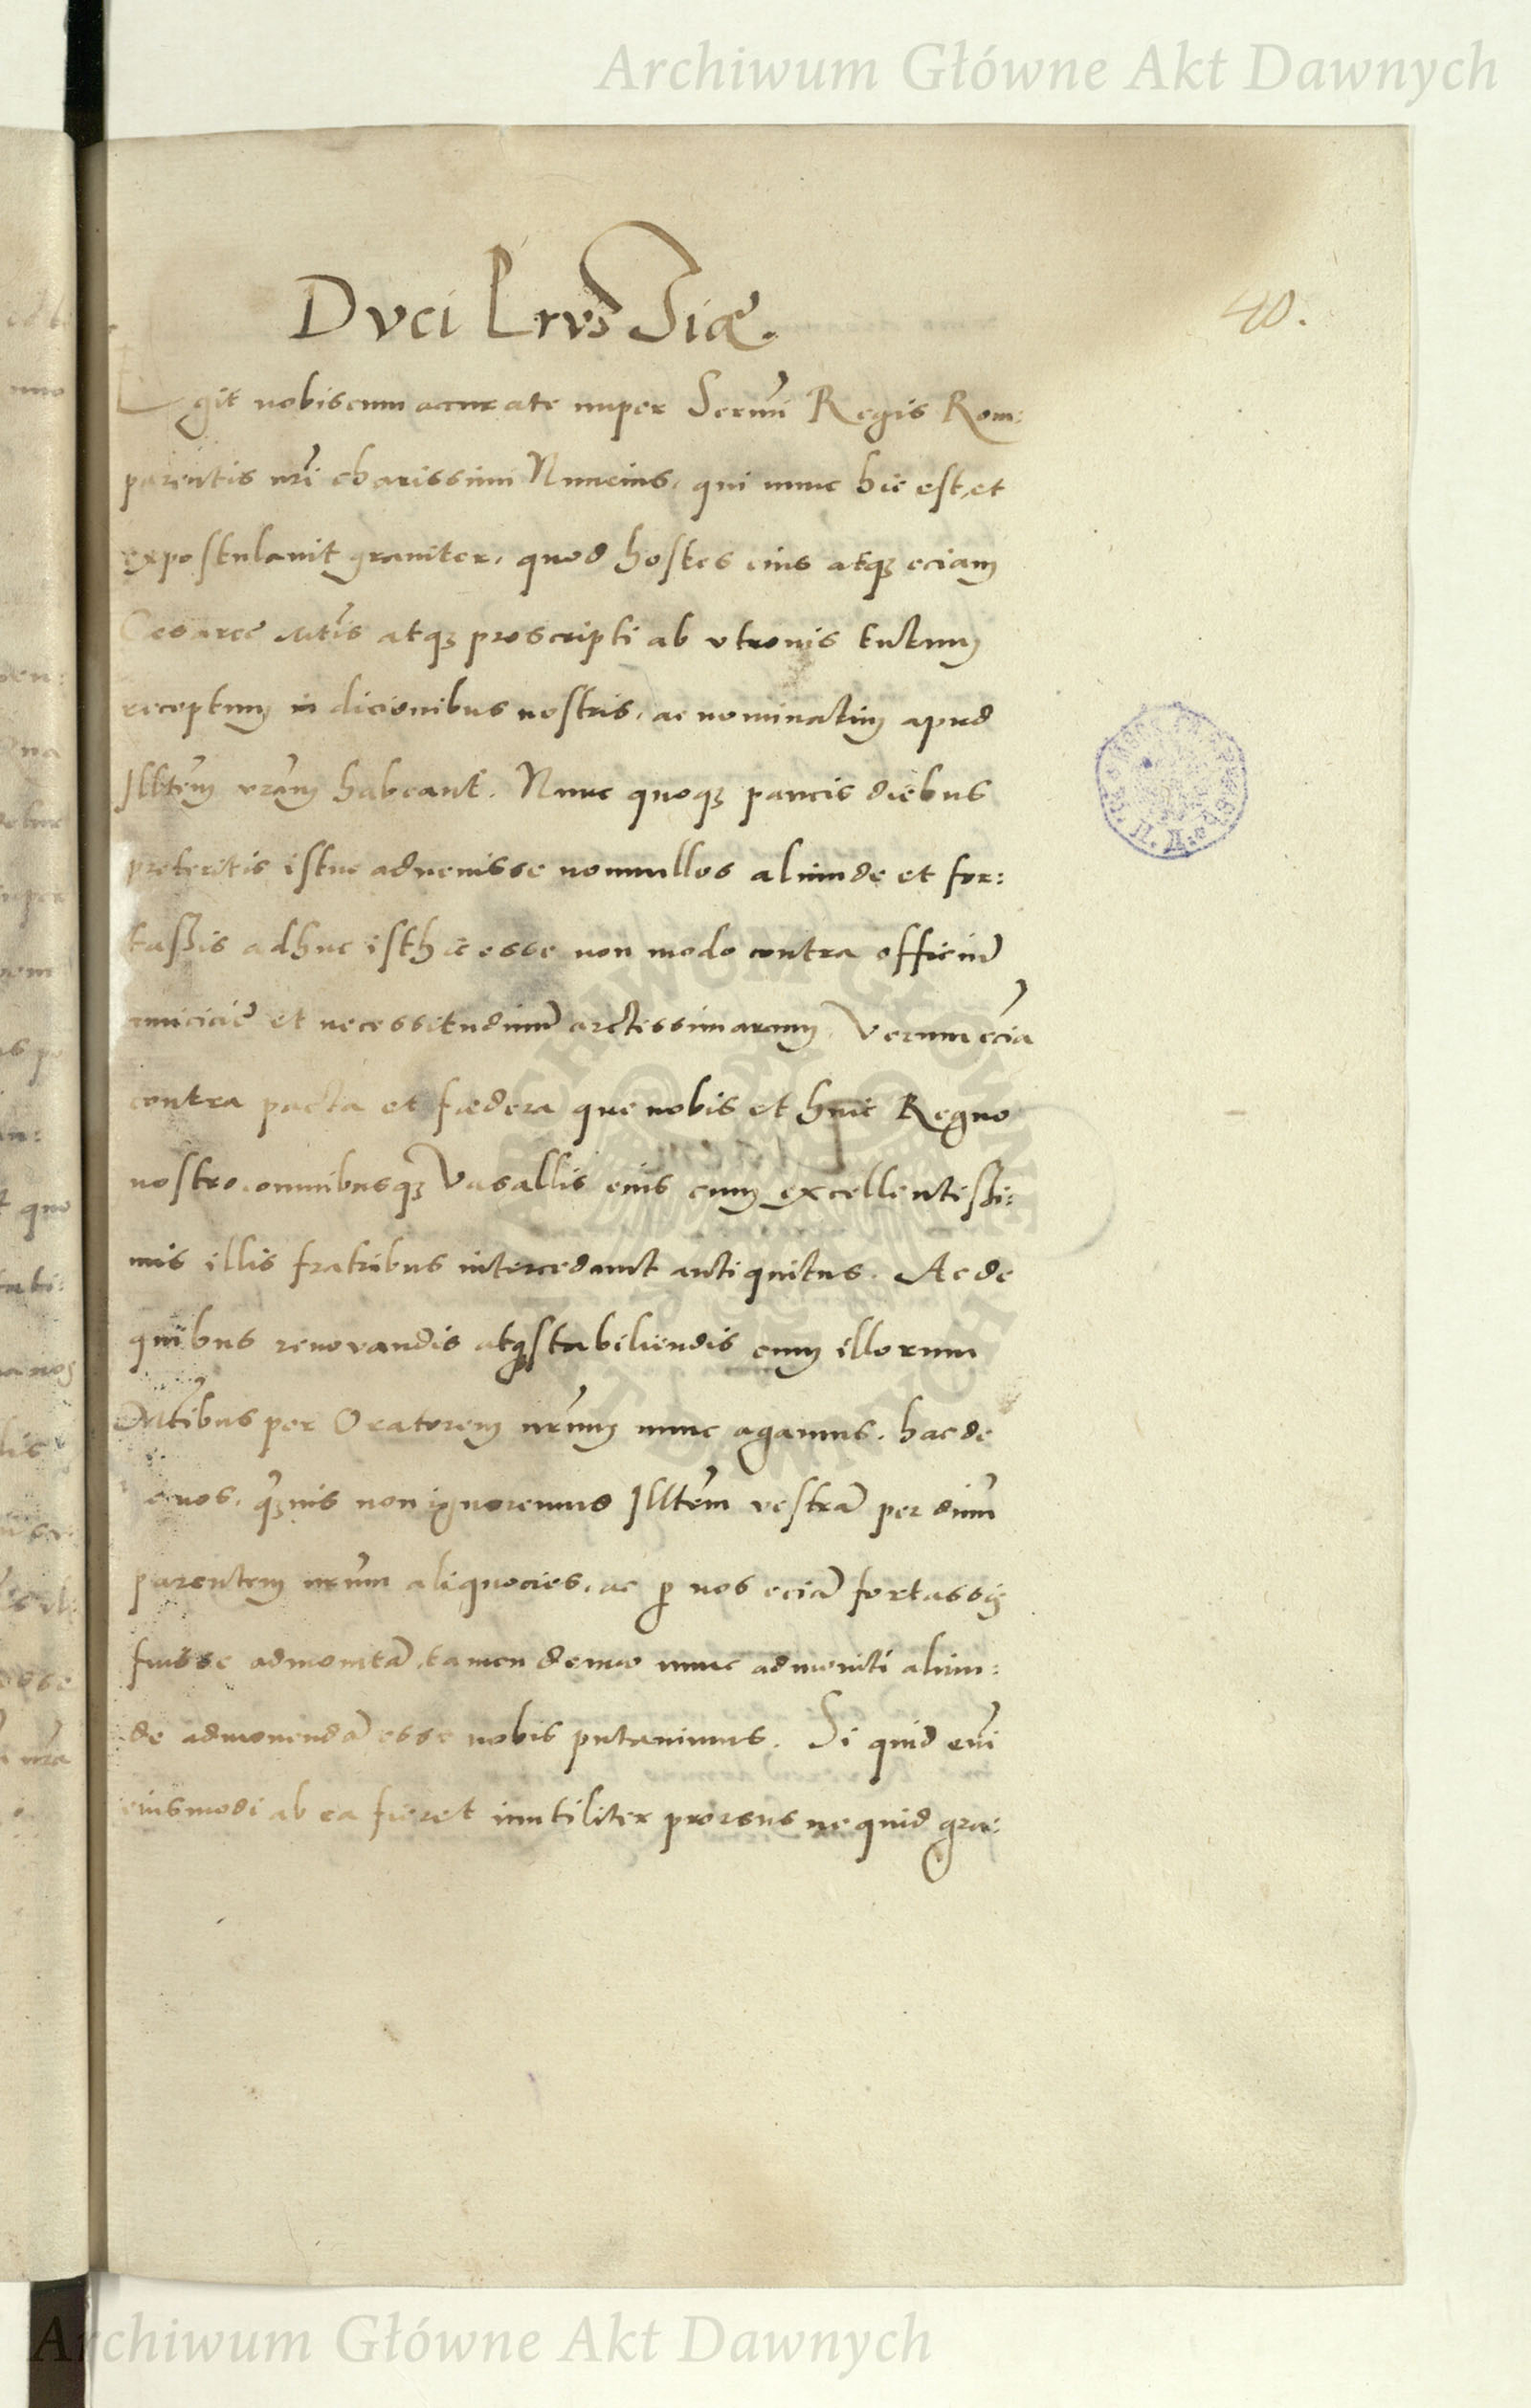 Archiwum Główne Akt Dawnych
40.
Dvci Prvssiæ.
Egit nobiscum accurate nuper Sermi Regis Rom:
parentis nri charissimi Nuncius, qui nunc hic est, et
expostulavit graviter, quod hostes eius atq3 eciam
Cesaree Mtis atq3 proscripti ab utronis tutum
receptum in dicionibus nostris, ac nominatim apud
Illtem vram habeant. Nunc quoq3 paucis diebus
preteritis istuc advenisse nonnullos aliunde et for:
tassis adhuc isthic esse non modo contra officiu
amicicie et necessitudinu arctissimarum, Verum ecia
contra pacta et fædera que nobis et huic Regno
nostro omnibusq3 Vasallis eius cum excellentissi:
mis illis fratribus intercedunt antiquitus. Ac de
quibus renovandis atq3 stabiliendis cum illorum
Mtibus per Oratorem nrum nunc agamus. hac de
nos, q3vis non ignoremus Illtem vestra per divu
parentem nrum aliquocies, ac p nos ecia fortassis
fuisse admonita, tamen denuo nunc admoniti aliun:
de admonenda esse nobis putavimus. Si quid eni
eiusmodi ab ea fieret inutiliter prorsus ne quid gra:
Archiwum Główne Akt Dawnych